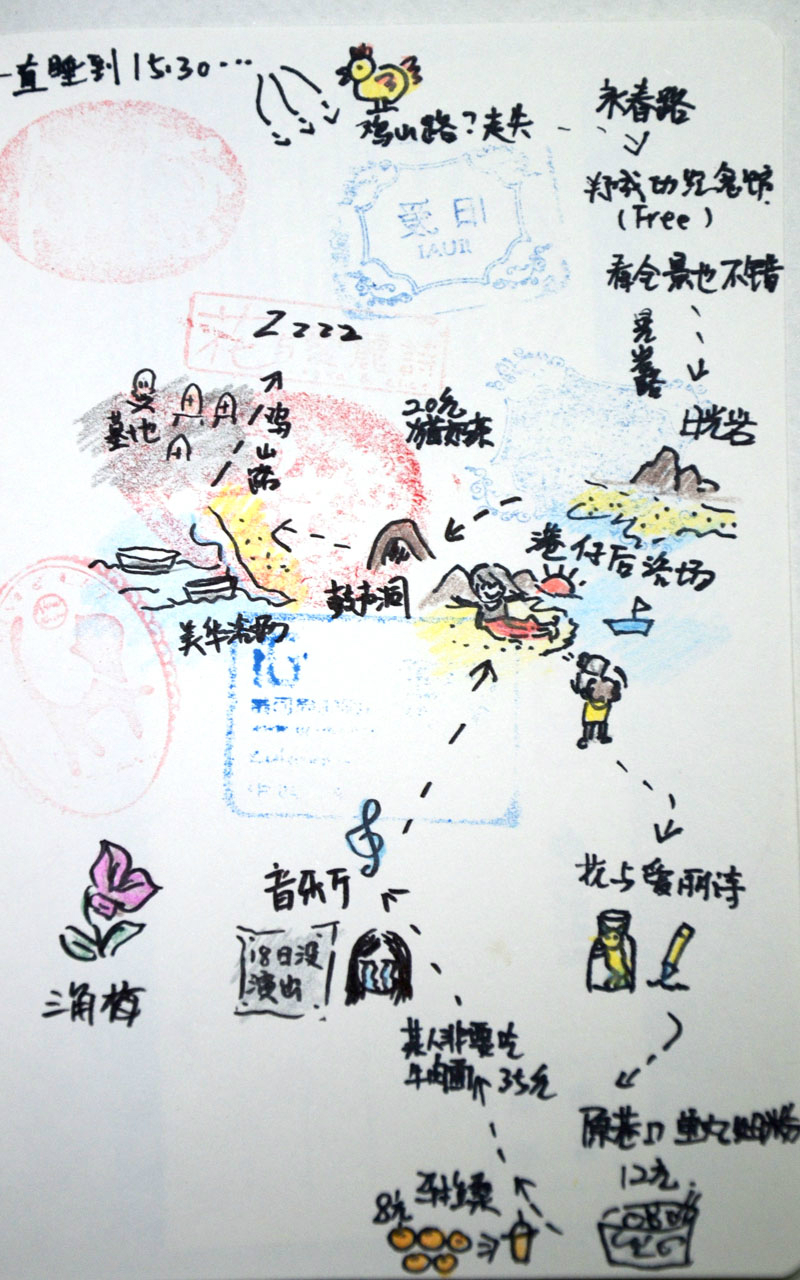 一直睡到15:30…
鸡山路?走失
永春路
郑成功纪念馆
(Free)
看全景也不错
晃岩路
日光岩
爰日
IAUR
Zzzzz
墓地
鸡山路
20元
港仔后浴场
鼓声洞
美华浴场
音乐厅
18日没
演出
三角梅
花与爱丽诗
某人非要吃
牛肉面 35元
原巷口
12元
8元